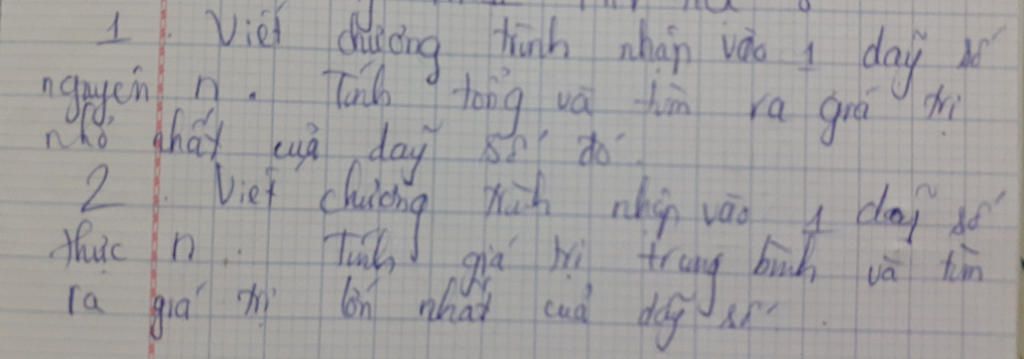 1. Viết chương trình nhập vào 1 dãy số
nguyên n. Tính tổng và tìm ra giá trị
nhỏ nhất của dãy số đó.
2. Viết chương trình nhập vào 1 dãy số
thực n. Tính giá trị trung bình và tìm
ra giá trị lớn nhất của dãy số.